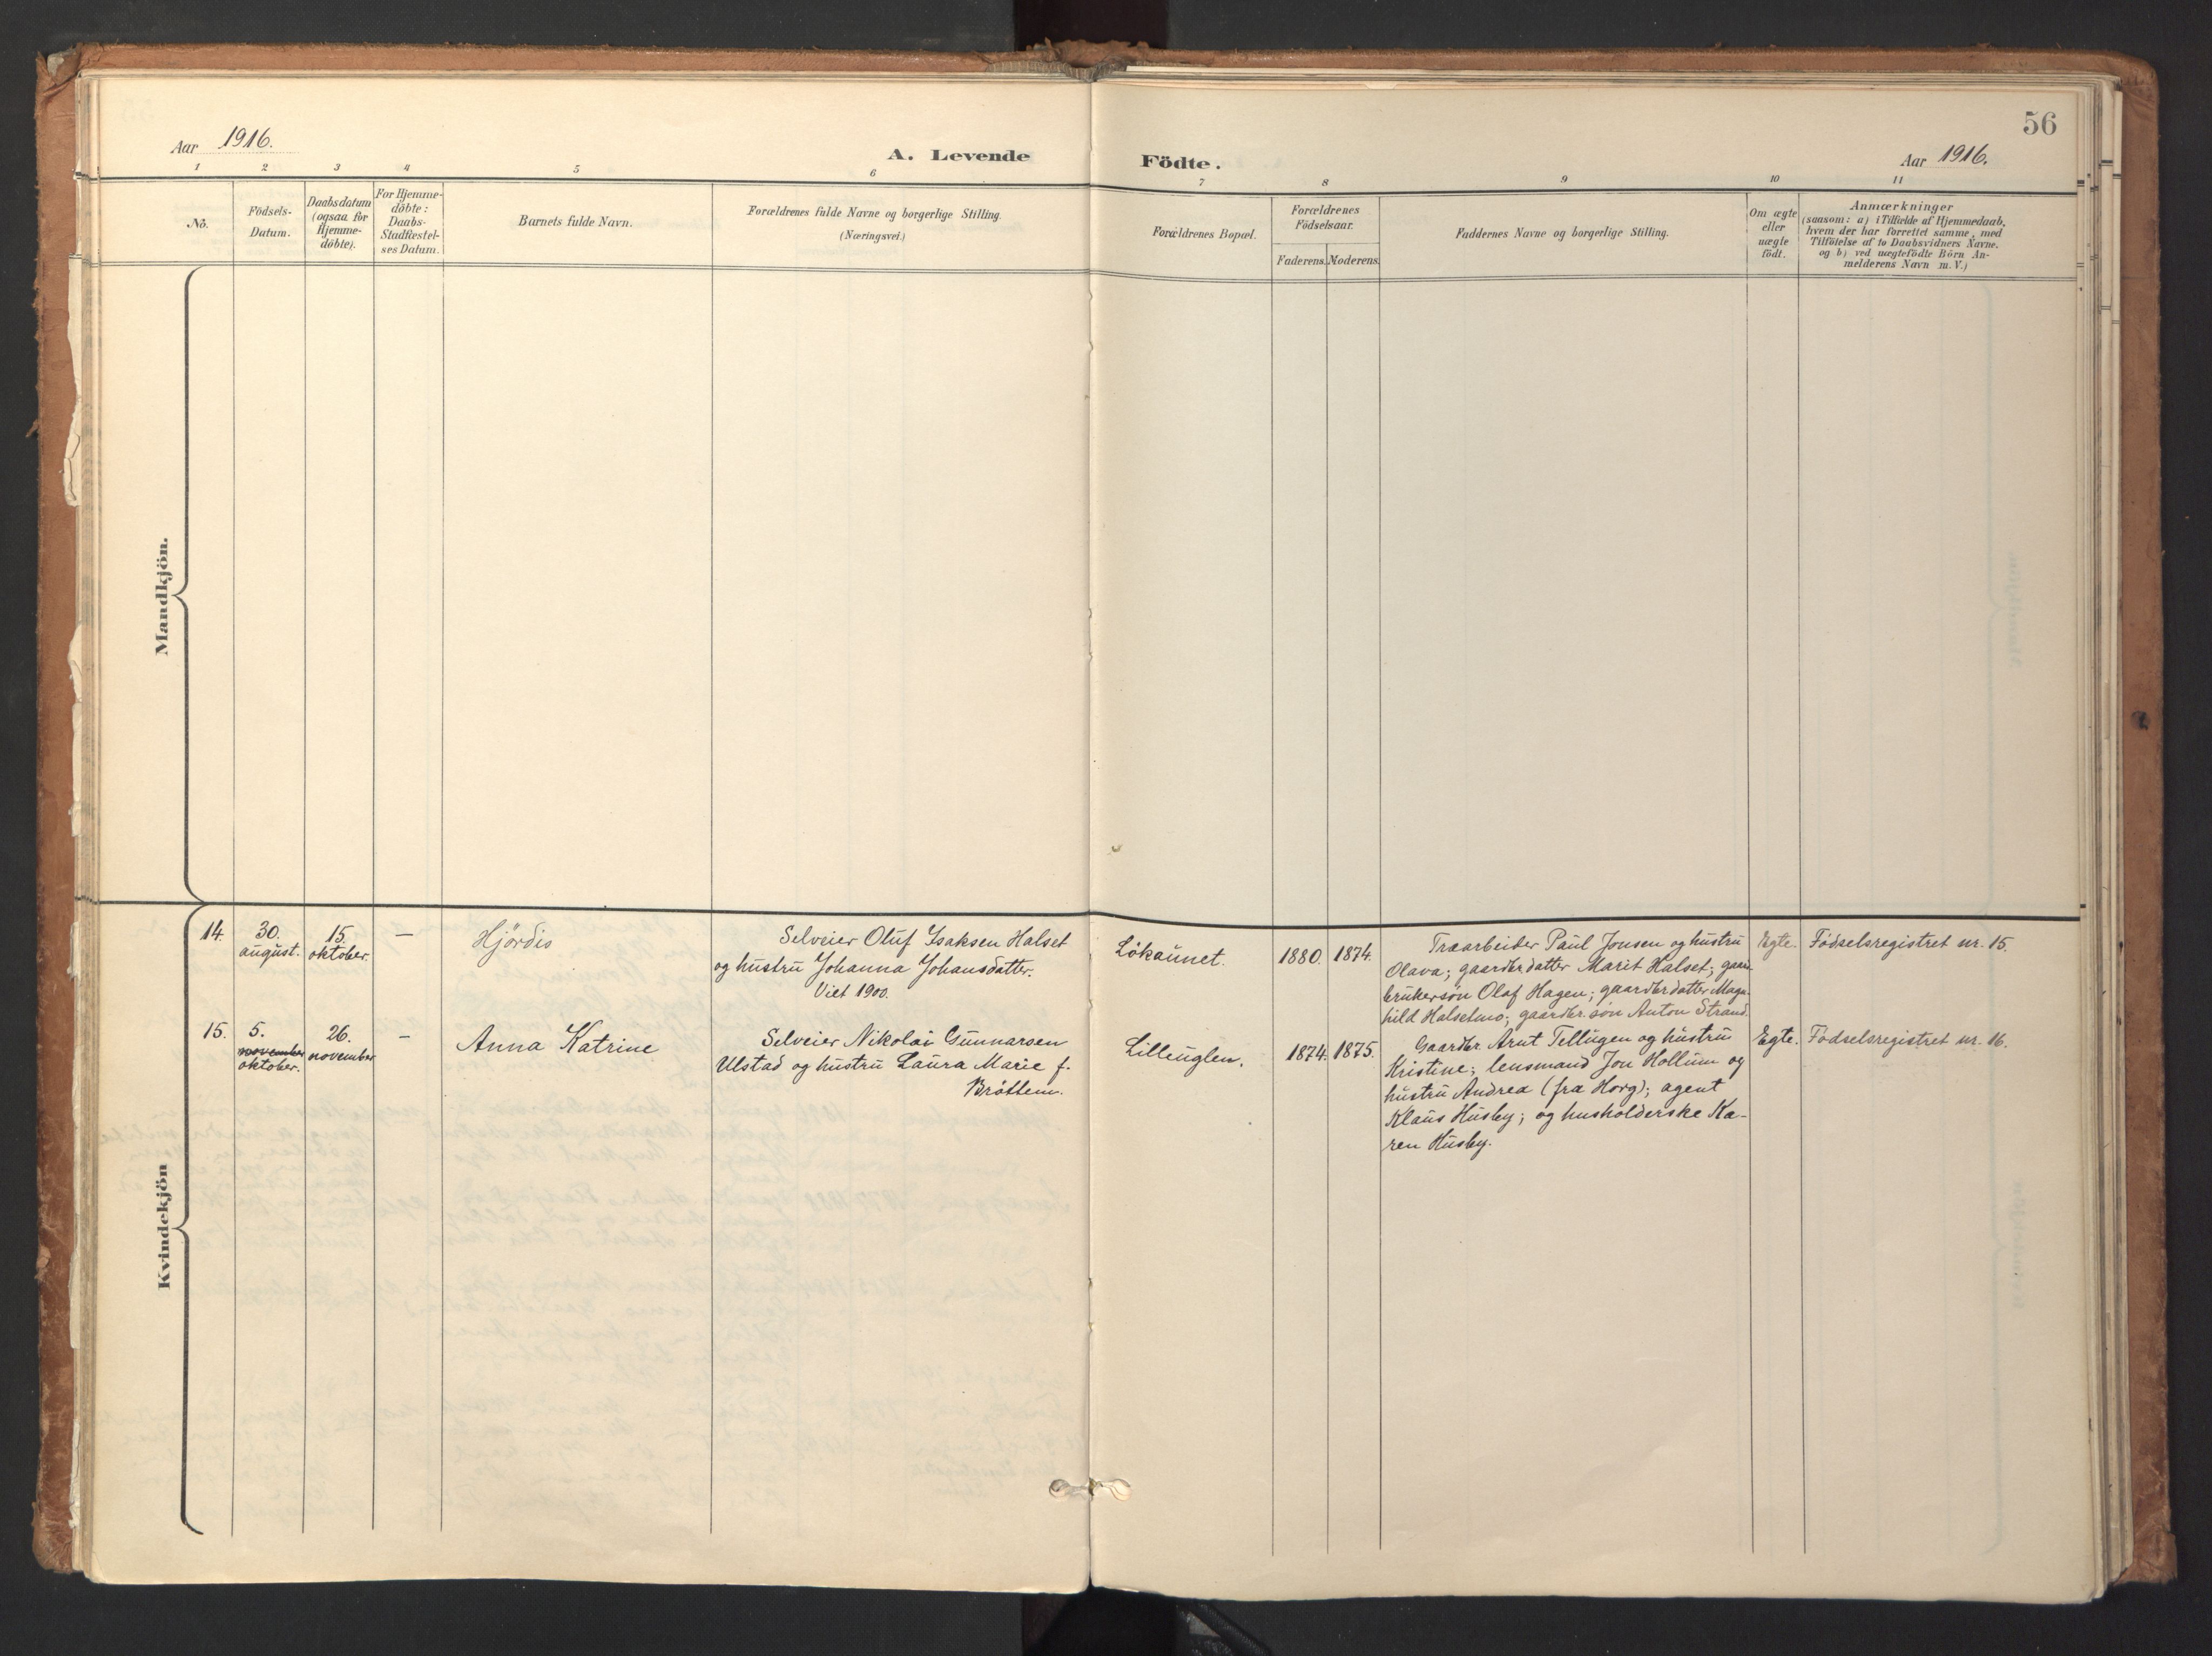 56
Aar 1916.
A. Levende Födte.
Aar 1916.
1 2 3 4 5 6 7 8 9 10 11
No.
Födsels-
Datum.
Daabsdatum
(ogsaa for
Hjemme-
döbte).
For Hjemme-
döbte:
Daabs-
Stadfæstel-
ses Datum.
Barnets fulde Navn.
Forældrenes fulde Navne og borgerlige Stilling.
(Næringsvei.)
Forældrenes Bopæl.
Forældrenes
Födselsaar.
Faderens. Moderens.
Faddernes Navne og borgerlige Stilling.
Om ægte
eller
uægte
födt.
Anmærkninger
(saasom: a) i Tilfælde af Hjemmedaab,
hvem der har forrettet samme, med
Tilföielse af to Daabsvidners Navne.
og b) ved uægtefödte Börn An-
melderens Navn m. V.)
Mandkjön.
Kvindekjön
14.
30.
august.
15.
oktober.
—
Hjördis
Selveier Oluf Isaksen Halset
og hustru Johanna Johansdatter.
Viet 1900.
Lökaunet.
1880. 1874.
Træarbeider Paul Jonsen og hustru
Olava; gaardbr.datter Marit Halset; gaard-
brukersön Olaf Hagen; gaardbr.datter Mag-
hild Halsetmo; gaardbr. sön Anton Strand.
Egte.
Födselsregistret nr. 15.
15.
5.
november
oktober.
26.
november
–
Anna Katrine
Selveier Nikolai Gunnarsen
Ulstad og hustru Laura Marie f.
Bröttem.
Lilleuglen.
1874. 1875.
Gaardbr. Arnt Tellugen og hustru
Kristine; lensmand Jon Hollum og
hustru Andrea (fra Horg); agent
Klaus Husby; og husholderske Ka-
ren Husby.
Egte.
Födselsregistret nr. 16.